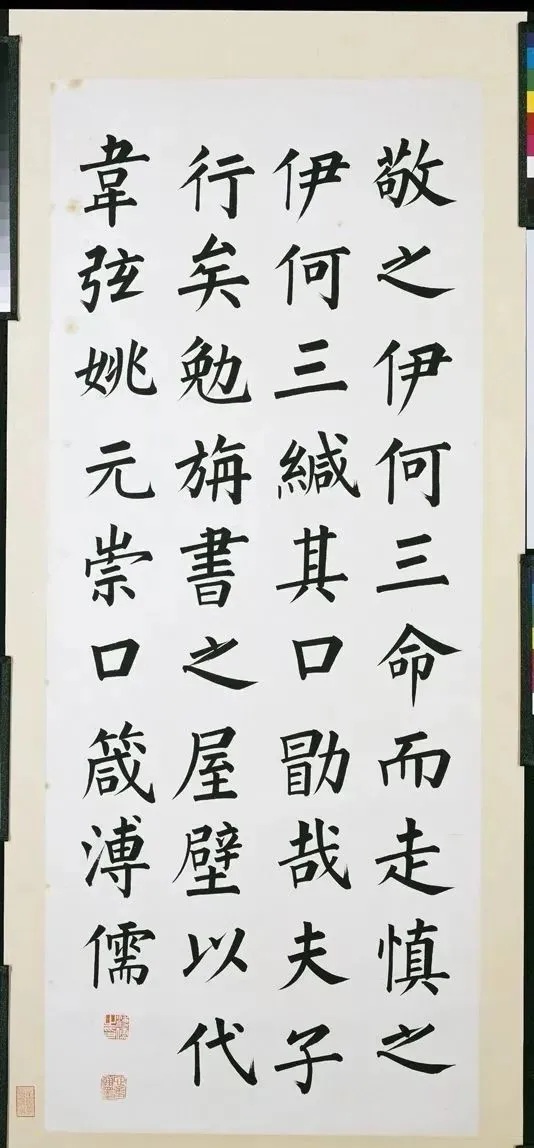 敬之伊何三命而走慎之
伊何三緘其口勖哉夫子
行矣勉旃書之屋壁以代
韋弦姚元崇口箴溥儒